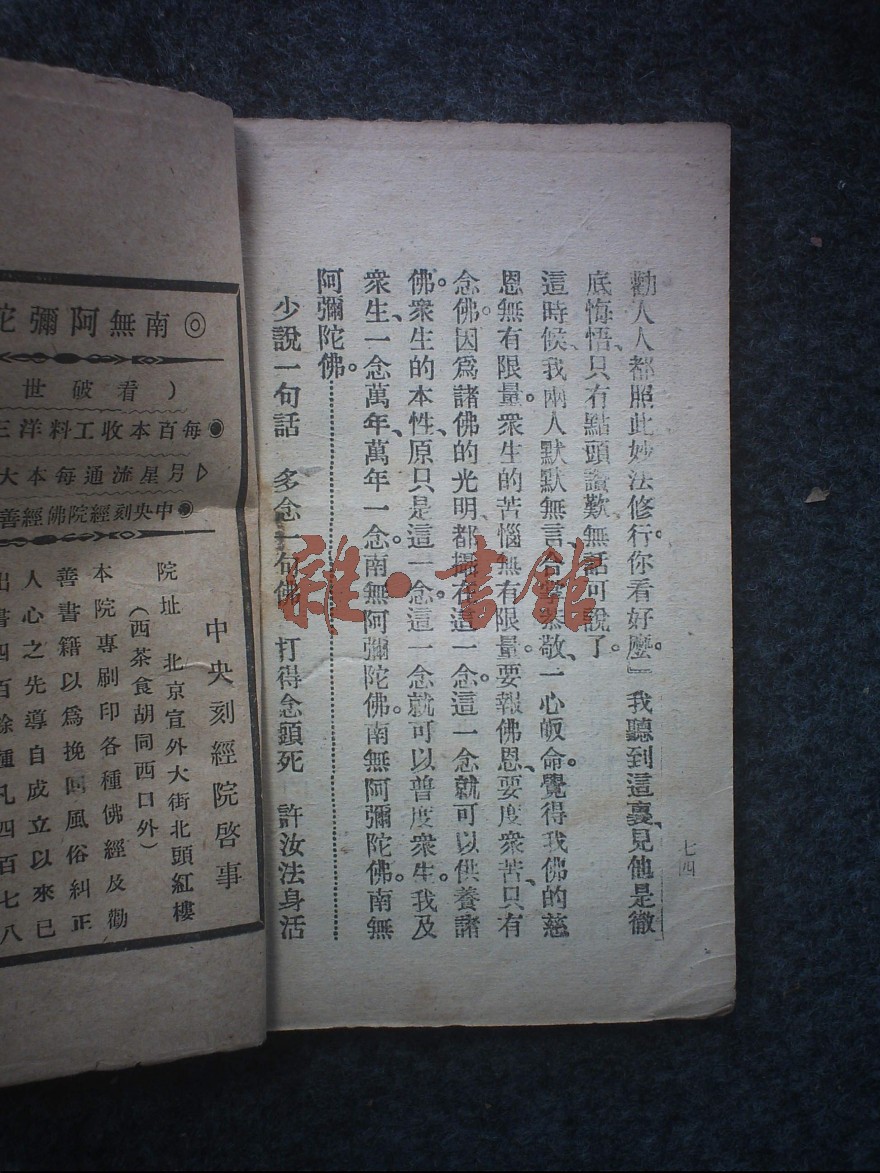 七四
勸人人都照此妙法修行。你看好麼。』我聽到這裏、見他是徹
底悔悟、只有點頭讚歎、無話可說了。
這時候、我兩人默默無言、合掌恭敬、一心皈命。覺得我佛的慈
恩無有限量。衆生的苦惱無有限量。要報佛恩、要度衆苦、只有
念佛。因爲諸佛的光明、都攝在這一念。這一念就可以供養諸
佛。衆生的本性、原只是這一念。這一念就可以普度衆生。我及
衆生、一念萬年、萬年一念。南無阿彌陀佛。南無阿彌陀佛。南無
阿彌陀佛。
少說一句話　多念一句佛　打得念頭死　許汝法身活
雜·書館
◎南無阿彌陀
（看破世
◉每百本收工料洋三
▷月星流通每本大
◉中央刻經院佛經善
中央刻經院啓事
院址　北京宣外大街北頭紅樓
（西茶食胡同西口外）
本院專刷印各種佛經及勸
善書籍以爲挽回風俗糾正
人心之先導自成立以來已
出書四百餘種凡四百七八